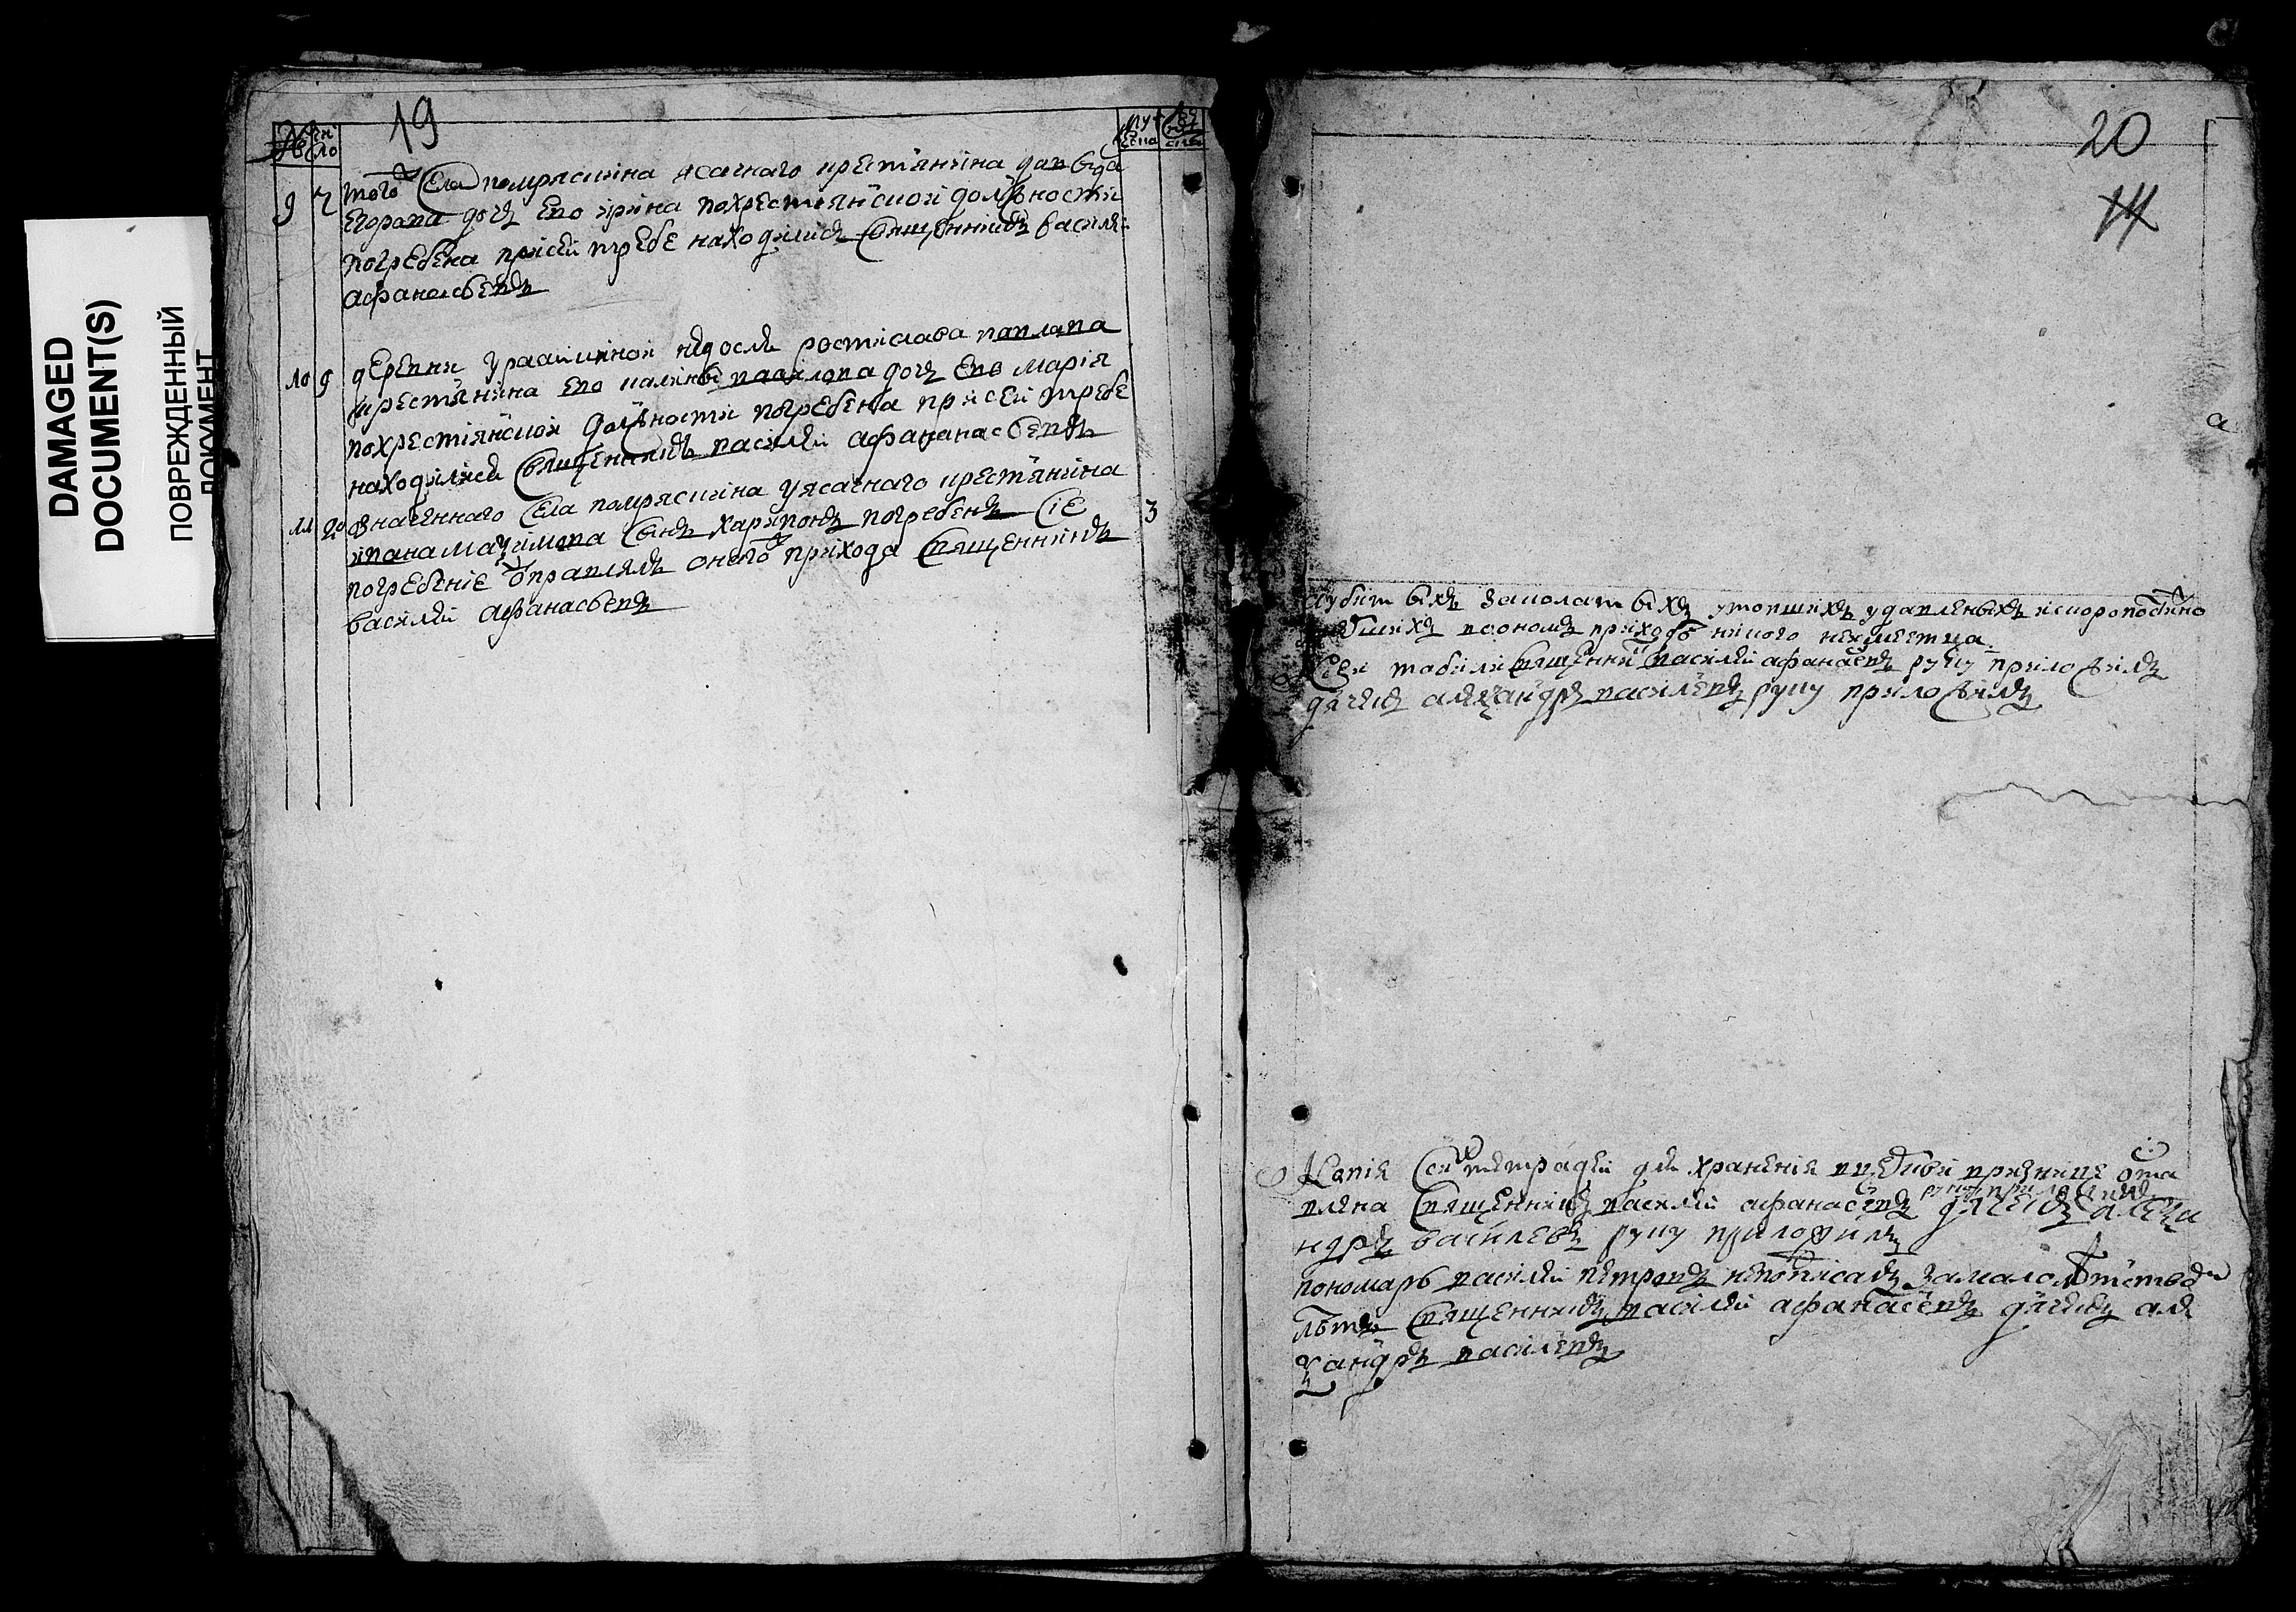 DAMAGED
DOCUMENT(S)
ПОВРЕЖДЕННЫЙ
ДОКУМЕНТ
19
чи
сло
9 7 того села помряскина ясачнаго крестьянина давыда
егорова дочь ево ирина похрестиянской должности
погребена присей требе находился священникъ василей
афанасьевъ
10 9 деревни ростислава павлова
крестьянина ево павлова дочь ево мария
похрестиянской должности погребена присей требе
находился священникъ василей афананасьевъ
11 20 означенного села помряскина уясачного крестьянина 3
ивана сынъ харитонъ погребенъ сие
погребение отправлялъ оного прихода священникъ
василей афанасьевъ
20
а
убитыхъ заколатыхъ утопшихъ удавленыхъ искоропостижно
воономъ приходе никого неимеетца
священникъ василей афанасевъ руку приложилъ
дячекъ алеѯандръ василевъ руку приложилъ
Копия стетрадей для хранения вцерковной ризнице оста
влена священникъ василей афанасевъ руку приложилъ дячекъ алеѯа
ндръ василевъ руку приложилъ
пономарь василей петровъ неподписалъ замалолѣтствомъ
священникъ василей афанасевъ дячекъ але
ѯандръ василевъ